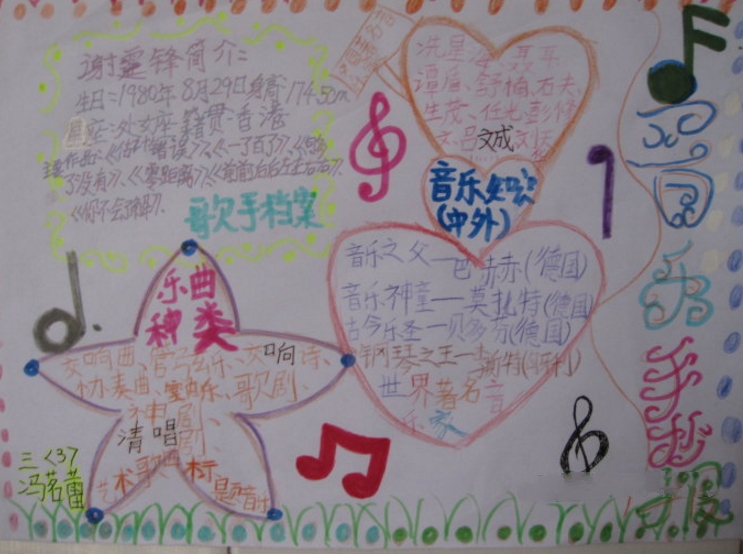 谢霆锋简介:
生日:1980年8月29日身高174.5cm
星座:处女座 籍贯:香港
错误》、《一了百了》、
了没有》、《零距离》、《前前后后左左右右》、
《你不会了解》
歌手档案
冼星海、聂耳
谭盾、舒楠、石夫、
生茂、任光
文成
音乐知识
(中外)
音乐之父—巴赫赫(德国)
音乐神童——莫扎特(德国)
古今乐圣—贝多芬(德国)
钢琴之王—李斯特(匈牙利)
世界著名音
乐家
乐曲
种类
交响曲、管弦乐、交响诗、
协奏曲、室内乐、歌剧
神剧、
清唱剧、
艺术歌曲
标题音乐
三〈3〉
冯茗蕾
音乐手抄报